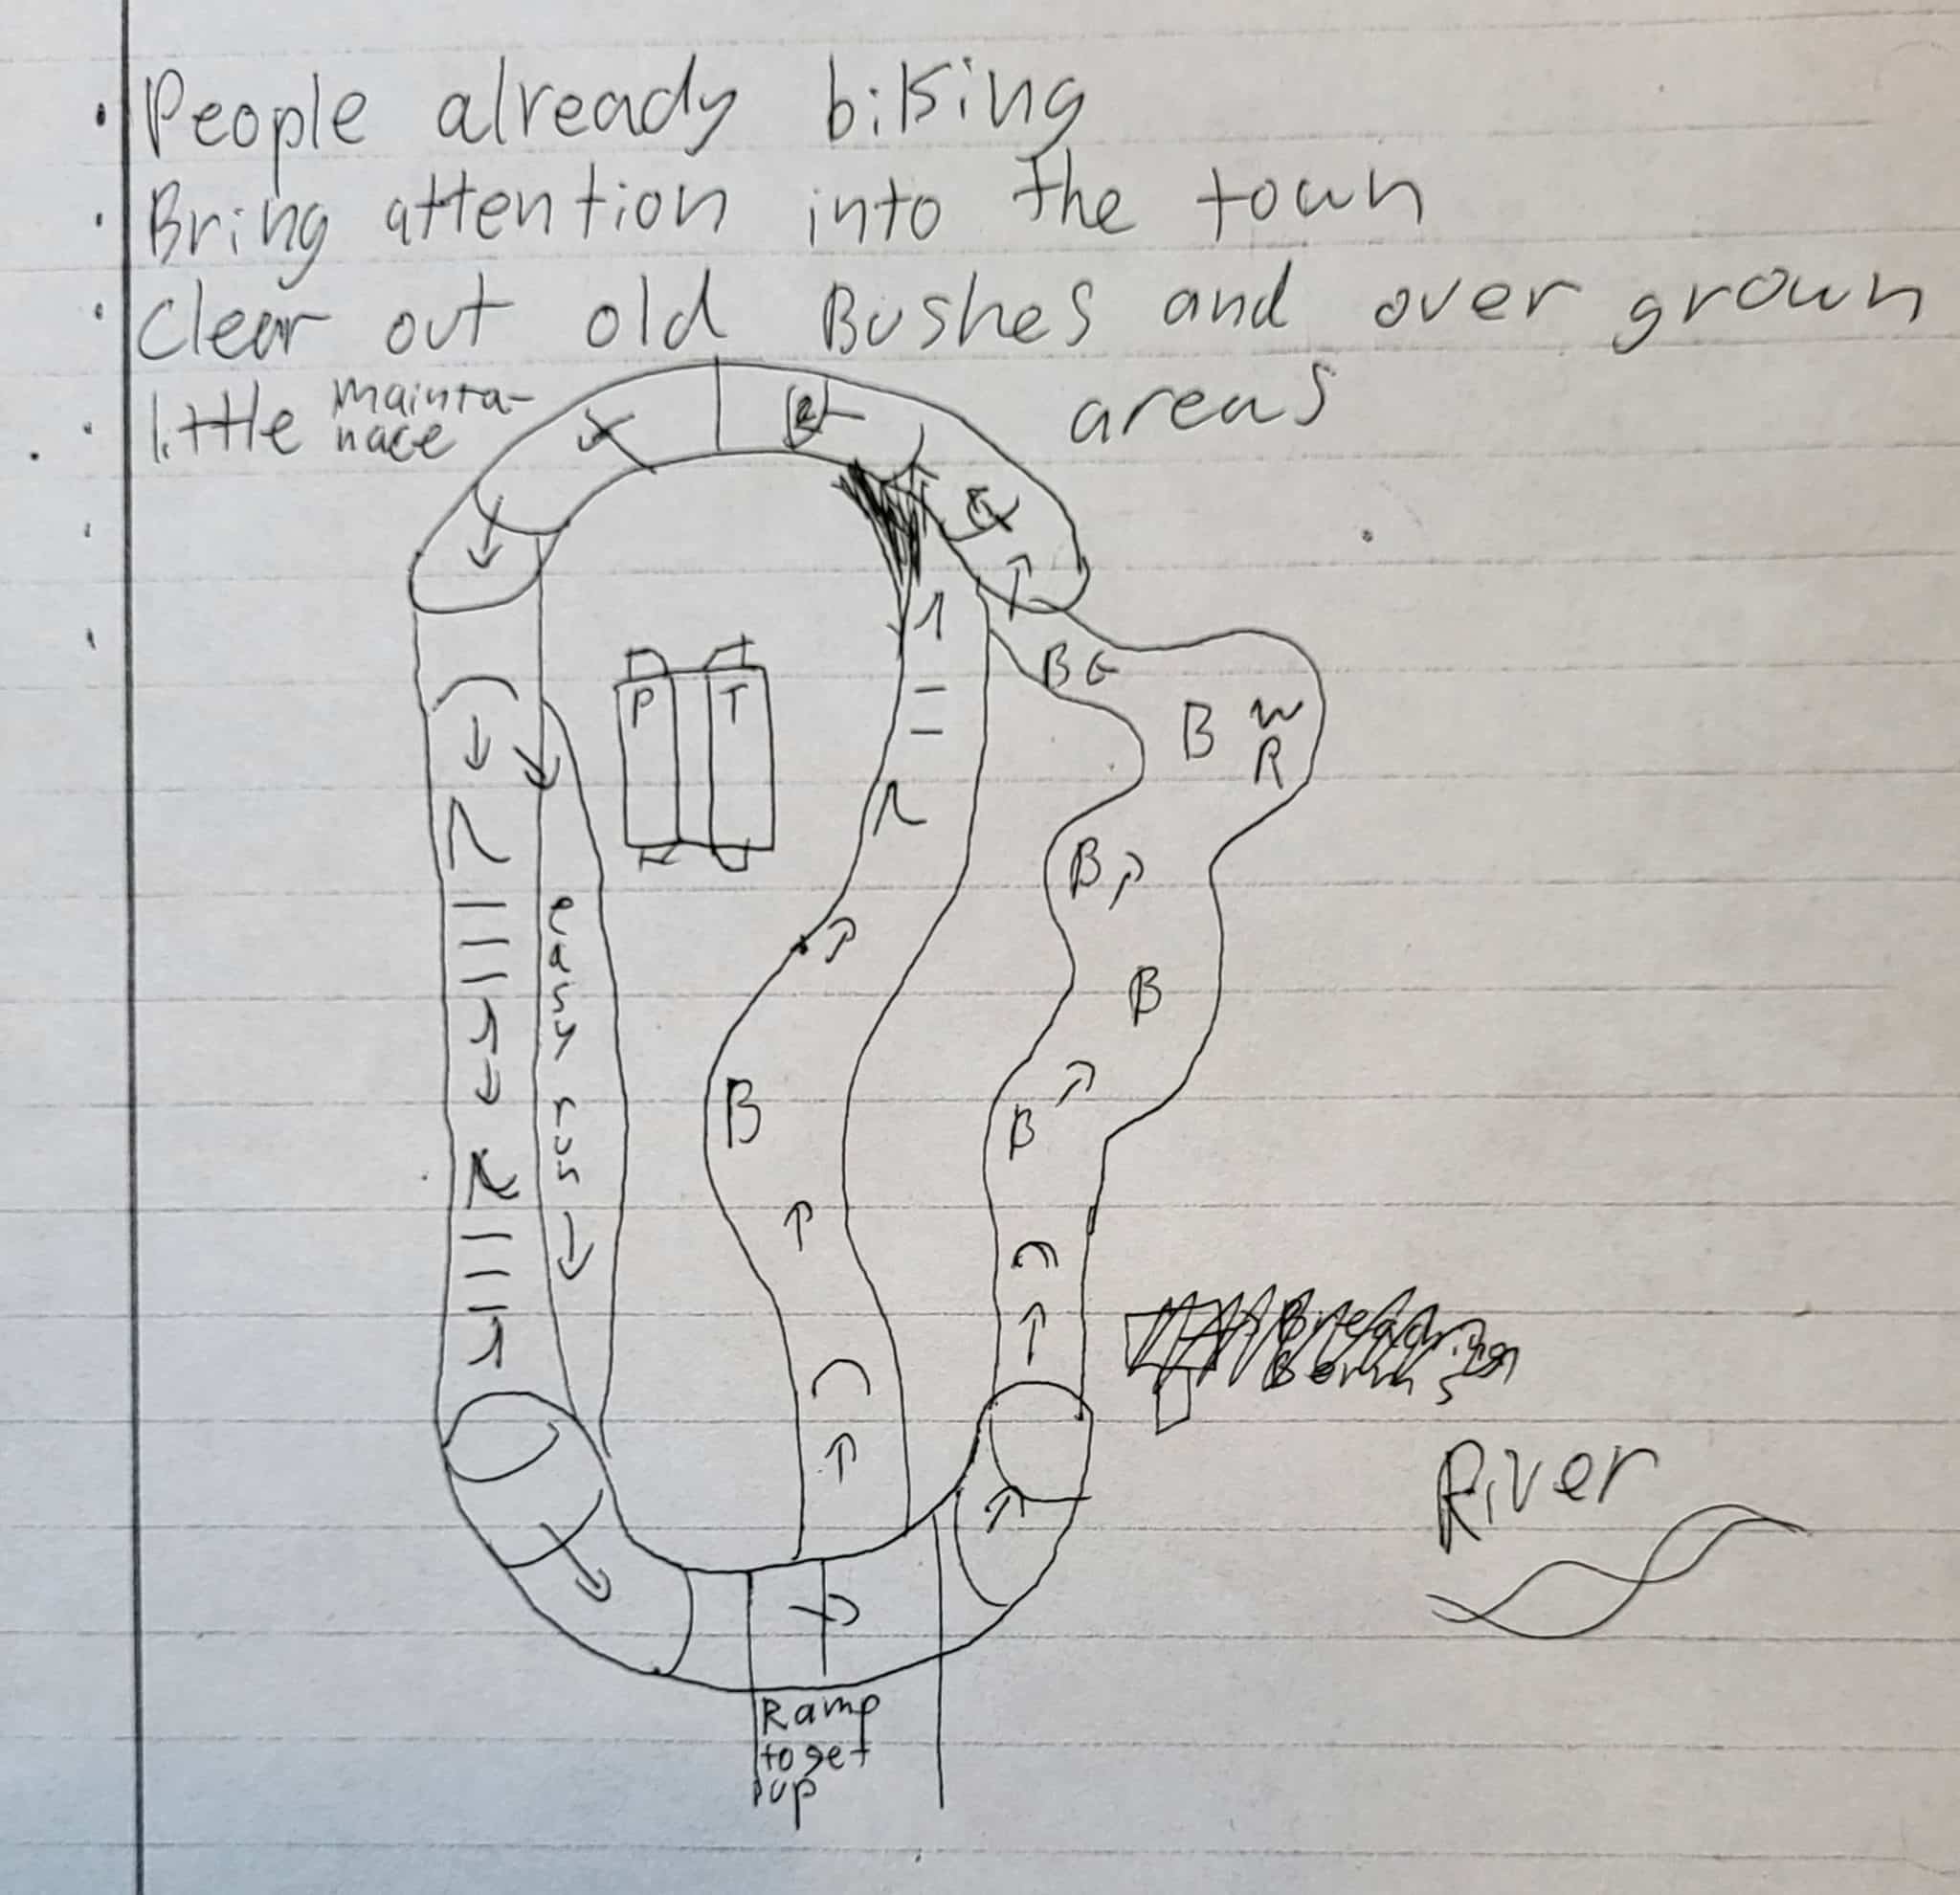 People already biking
Bring attention into the town
Clear out old Bushes and over grown
areas
little mainta-
nace
B
W
R
B
P T
B
B
B
B
easy run
River
Ramp
to get
up